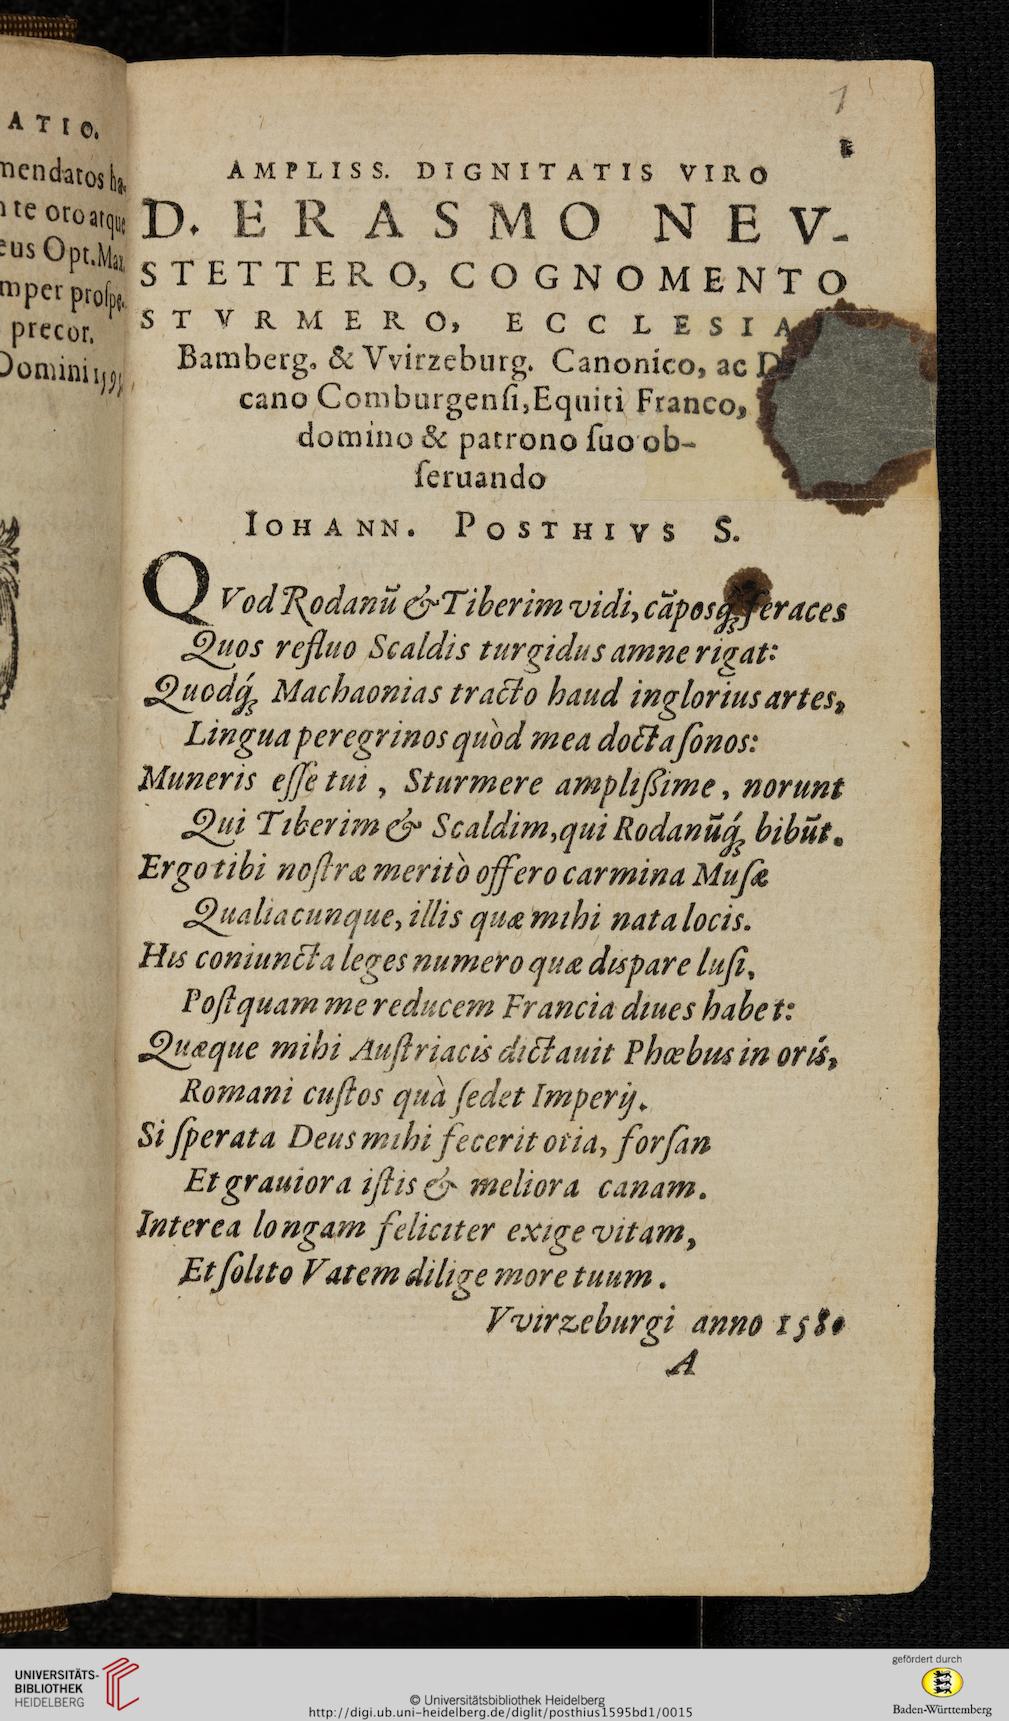 ATIO.
mendatos ha-
te oro atque
eus Opt. Max.
mper prospe-
precor.
Domini 1595
1
AMPLISS. DIGNITATIS VIRO
D. ERASMO NEV-
STETTERO, COGNOMENTO
STVRMERO, ECCLESIA
Bamberg. & Vvirzeburg. Canonico, ac D
cano Comburgenſi, Equiti Franco,
domino & patrono ſuo ob-
ſeruando
IOHANN. POSTHIVS S.
QVod Rodanũ & Tiberim vidi, cãposq́ꝫ feraces
Quos refluo Scaldis turgidus amne rigat:
Quodq́ꝫ Machaonias tracto haud inglorius artes,
Lingua peregrinos quòd mea docta ſonos:
Muneris eſſe tui, Sturmere ampliſsime, norunt
Qui Tiberim & Scaldim, qui Rodanũq́ꝫ bibũt.
Ergo tibi noſtræ meritò offero carmina Muſæ
Qualiacunque, illis quæ mihi nata locis.
His coniuncta leges numero quæ dispare luſi,
Poſtquam me reducem Francia diues habet:
Quæque mihi Auſtriacis dictauit Phœbus in oris,
Romani cuſtos quà ſedet Imperij.
Si ſperata Deus mihi fecerit otia, forſan
Et grauiora iſtis & meliora canam.
Interea longam feliciter exige vitam,
Et ſolito Vatem dilige more tuum.
Vvirzeburgi anno 1580
A
UNIVERSITÄTS-
BIBLIOTHEK
HEIDELBERG
© Universitätsbibliothek Heidelberg
http://digi.ub.uni-heidelberg.de/diglit/posthius1595bd1/0015
gefördert durch
Baden-Württemberg